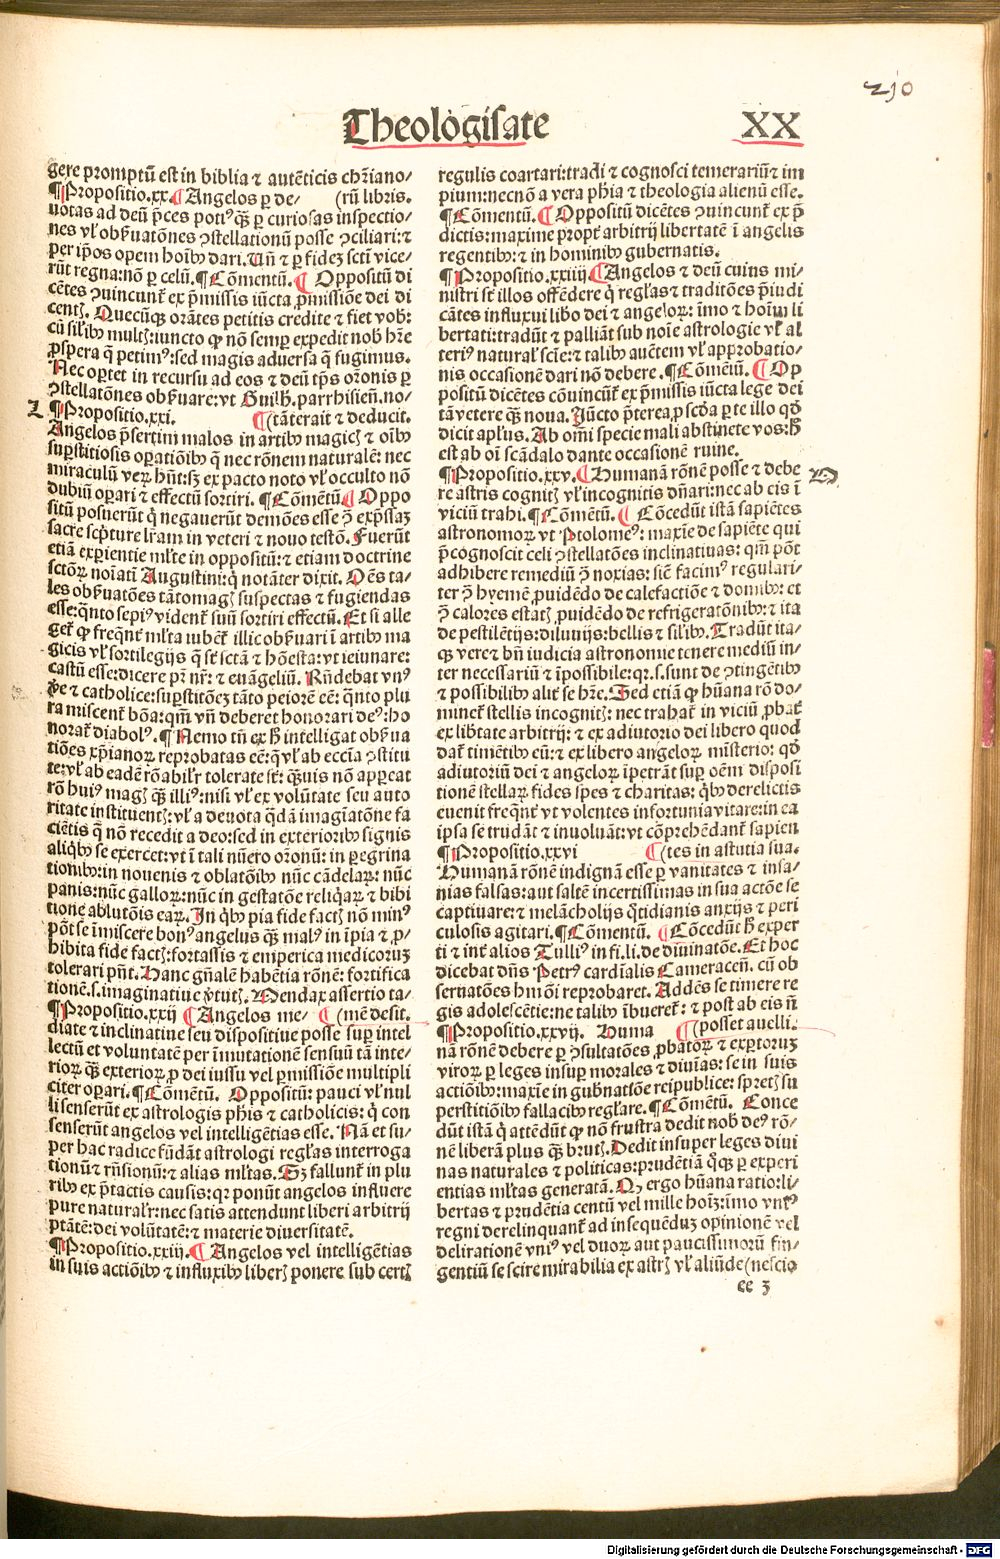 210
Theologisate XX
gere promptū est in biblia ⁊ autēticis chr̄iano-
¶Propositio.xx.¶Angelos ꝑ de- (rū libris.
uotas ad deū p̄ces potiꝰ qȝ̄ ꝑ curiosas inspectio-
nes vl̓ obẜuatōnes ꝯstellationū posse ꝯciliari:⁊
per ip̄os opem hoīb⁹ dari. Uñ ⁊ ꝑ fideȝ sctī vice-
rūt regna:nō ꝑ celū.¶Cōmentū.¶ Oppositū di
cētes ꝯuincunt᷑ ex p̄missis iūcta ꝓmissiōe dei di
centꝭ. Quecūqȝ orātes petitis credite ⁊ fiet vob:
cū silib⁹ multꝭ:iuncto ꝙ nō semꝑ expedit nob hr̄e
ꝓspera q̄ petimꝰ:sed magis aduersa q̄ fugimus.
Nec oꝑtet in recursu ad eos ⁊ deū tp̄s or̄onis ꝑ
ꝯstellatōnes obẜuare:vt Guilħ.parrhisieñ.no-
¶Propositio.xxi. ¶(tāterait ⁊ deducit.
Angelos p̄sertim malos in artib⁹ magicꝭ ⁊ oīb⁹
suꝑstitiosis oꝑatiōib⁹ q̄ nec rōnem naturalē: nec
miraculū veꝝ hn̄t:sȝ ex pacto noto vl̓ occulto nō
dubiū oꝑari ⁊ effectū sortiri. ¶Cōmentū¶ Oppo
sitū posuerūt q̇ negauerūt demōes esse ꝯ̄ exp̄ssaȝ
sacre sc̄pture lr̄am in veteri ⁊ nouo testō.Fuerūt
etiā exꝑientie ml̓te in oppositū:⁊ etiam doctrine
sctōꝝ noīati Augustini:q̇ notāter dixit. Oēs ta-
les obẜuatōes tātomagꝭ suspectas ⁊ fugiendas
esse:qn̄to sepiꝰ vident᷑ suū sortiri effectū.Et si alle
get᷑ ꝙ freqn̄t᷑ ml̓ta iubēt᷑ illic obẜuari ī artib⁹ ma
gicis vl̓ sortilegijs q̄ st̄ sctā ⁊ hōesta:vt ieiunare:
castū esse:dicere pr̄ nr̄:⁊ euāgeliū. Rn̄debat vnꝰ
ꝟe ⁊ catholice:suꝑstitōeȝ tāto peiorē cē: qn̄to plu
ra miscent᷑ bōa:qm̄ vn̄ deberet honorari deꝰ:ho
norat᷑ diabolꝰ.¶Nemo tn̄ ex ħ intelligat obẜua
tiōes xp̄ianoꝝ reprobatas cē:q̄ vl̓ ab eccīa ꝯstitu
te:vl̓ ab eadē rōabilr̄ tolerate st̄: qȝ̄uis nō appeat
rō huiꝰ magꝭ qȝ̄ illiꝰ:nisi vl̓ ex volūtate seu auto
ritate instituentꝭ:vl̓ a deuota qdā imagiatōne fa
ciētis q̄ nō recedit a deo:sed in exteriorib⁹ signis
aliq̇b⁹ se exercet:vt ī tali nūero or̄onū: in ꝑegrina
tionib⁹:in nouenis ⁊ oblatōib⁹ nūc cādelaꝝ: nūc
panis:nūc galloꝝ:nūc in gestatōe reliq̇aꝝ ⁊ bibi
tione ablutōis eaꝝ.In q̇b⁹ pia fide factꝭ nō minꝰ
pōt se īmiscere bonꝰ angelus qȝ̄ malꝰ in īpia ⁊ ꝓ-
hibita fide factꝭ:fortassis ⁊ emperica medicorū
tolerari pn̄t.Hanc gn̄alē habētia rōnē: fortifica
tionē.s.imaginatiue ꝟtutꝭ. Mendax assertio ta-
¶Propositio.xxij ¶Angelos me- ¶(mē desit.
diate ⁊ inclinatiue seu dispositiue posse suꝑ intel
lectū et voluntatē per īmutationē sensuū tā inte-
rioꝝ qȝ̄ exterioꝝ ꝓ dei iussu vel ꝑmissiōe multipli
citer oꝑari.¶Cōmētū. Oppositū: pauci vl̓ nul
li senserūt ex astrologis ph̄is ⁊ catholicis: q̇ con
senserūt angelos vel intelligētias esse. Nā et su-
per hac radice fūdāt astrologi regl̓as interroga
tionū ⁊ rn̄sionū:⁊ alias ml̓tas. Sȝ fallunt᷑ in plu
rib⁹ ex p̄tactis causis:qꝛ ponūt angelos influere
pure naturalr̄:nec satis attendunt liberi arbitrij
ptātē:dei volūtatē:⁊ materie diuersitatē.
¶Propositio.xxiij.¶ Angelos vel intelligētias
in suis actiōib⁹ ⁊ influxib⁹ liberꝭ ponere sub certꝭ
regulis coartari:tradi ⁊ cognosci temerariū ⁊ im
pium:necnō a vera ph̄ia ⁊ theologia alienū esse.
¶Cōmentū.¶ Oppositū dicētes ꝯuincunt᷑ ex p̄
dictis:maxime propt̓ arbitrij libertatē ī angelis
regentib⁹:⁊ in hominib⁹ gubernatis.
¶Propositio.xxiiij.¶Angelos ⁊ deū cuius mi-
nistri st̄ illos offēdere q̇ regl̓as ⁊ traditōes p̄iudi
cātes influxui libō dei ⁊ angeloꝝ: īmo ⁊ hoīm li
bertati:tradūt ⁊ palliāt sub noīe astrologie vl̓ al
teriꝰ natural̓ scīe:⁊ talib⁹ auētem vl̓ approbatio-
nis occasionē dari nō debere.¶Cōmētū.¶Op
positū dicētes cōuincūt᷑ ex p̄missis iūcta lege dei
tā vetere qȝ̄ noua. Jūcto p̄terea ꝓ scd̄a ꝑte illo qd̄
dicit apl̓us. Ab om̄i specie mali abstinete vos:ħ
est ab oī scādalo dante occasionē ruine.
¶Propositio.xxv.¶Humanā rōnē posse ⁊ debe
re astris cognitꝭ vl̓ incognitis dn̄ari:nec ab eis ī
viciū trahi.¶Cōmētū.¶ Cōcedūt istā sapiētes
astronomoꝝ vt Ptolomeꝰ: maxīe de sapiēte qui
p̄cognoscit celi ꝯstellatōes inclinatiuas: qm̄ pōt
adhibere remediū ꝯ̄ noxias: sic̄ facimꝰ regulari-
ter ꝯ̄ hyemē ꝓuidēdo de calefactiōe ⁊ domib⁹: et
ꝯ̄ calores estatꝭ ꝓuidēdo de refrigeratōnib⁹:⁊ ita
de pestilētijs:diluuijs:bellis ⁊ silib⁹. Tradūt ita-
qȝ vere ⁊ bn̄ iudicia astronomie tenere mediū in-
ter necessariū ⁊ īpossibile:qꝛ.s.sunt de ꝯtingētib⁹
⁊ possibilib⁹ alit̓ se hr̄e.Sed etiā ꝙ hūana rō do-
minet᷑ stellis incognitꝭ: nec trahat᷑ in viciū ꝓbat᷑
ex lib̄tate arbitrij: ⁊ ex adiutorio dei libero quod
dat᷑ timētib⁹ eū:⁊ ex libero angeloꝝ mīsterio: qd̄
adiutoriū dei ⁊ angeloꝝ īpetrāt suꝑ oēm disposi
tionē stellaꝝ fides spes ⁊ charitas: q̇b⁹ derelictis
euenit freqn̄t᷑ vt volentes infortunia vitare:in ea
ipsa se trudāt ⁊ inuoluāt:vt cōprehēdant᷑ sapien
¶Propositio.xxvi ¶(tes in astutia sua.
Humanā rōnē indignā esse ꝑ vanitates ⁊ insa-
nias falsas:aut saltē incertissimas in sua actōe se
captiuare:⁊ melācholijs q̇tidianis anxijs ⁊ peri
culosis agitari.¶Cōmentū. ¶Cōcedūt ħ exper
ti ⁊ int̓ alios Tulliꝰ in fi.li.de diuinatōe. Et hoc
dicebat dn̄s Petrꝰ cardīalis Cameraceñ. cū ob
seruatōes hmōi reprobaret. Addēs se timere re
gis adolescētie:ne talib⁹ ībueret᷑:⁊ post ab eis n̄
¶Propositio.xxvij. Huma ¶(posset auelli.
nā rōnē debere ꝑ ꝯsultatōes ꝓbatoꝝ ⁊ exꝑtorū
viroꝝ ꝑ leges insuꝑ morales ⁊ diuīas: se in suis
actiōib⁹:maxīe in gub̄natiōe reipublice: spretꝭ su
perstitiōib⁹ fallacib⁹ regl̓are.¶Cōmētū. Conce
dūt istā q̇ attēdūt ꝙ nō frustra dedit nob deꝰ rō-
nē liberā plus qȝ̄ brutꝭ.Dedit insuper leges diui
nas naturales ⁊ politicas:prudētiā q̇qȝ ꝑ experi
entias ml̓tas generatā. Qꝫ ergo hūana ratio:li-
bertas ⁊ prudētia centū vel mille hoīȝ:īmo vnīꝰ
regni derelinquant᷑ ad insequēduȝ opinionē vel
delirationē vniꝰ vel duoꝝ aut paucissimorū fin-
gentiū se scire mirabilia ex astrꝭ vl̓ aliūde (nescio
cc 3
Digitalisierung gefördert durch die Deutsche Forschungsgemeinschaft - DFG